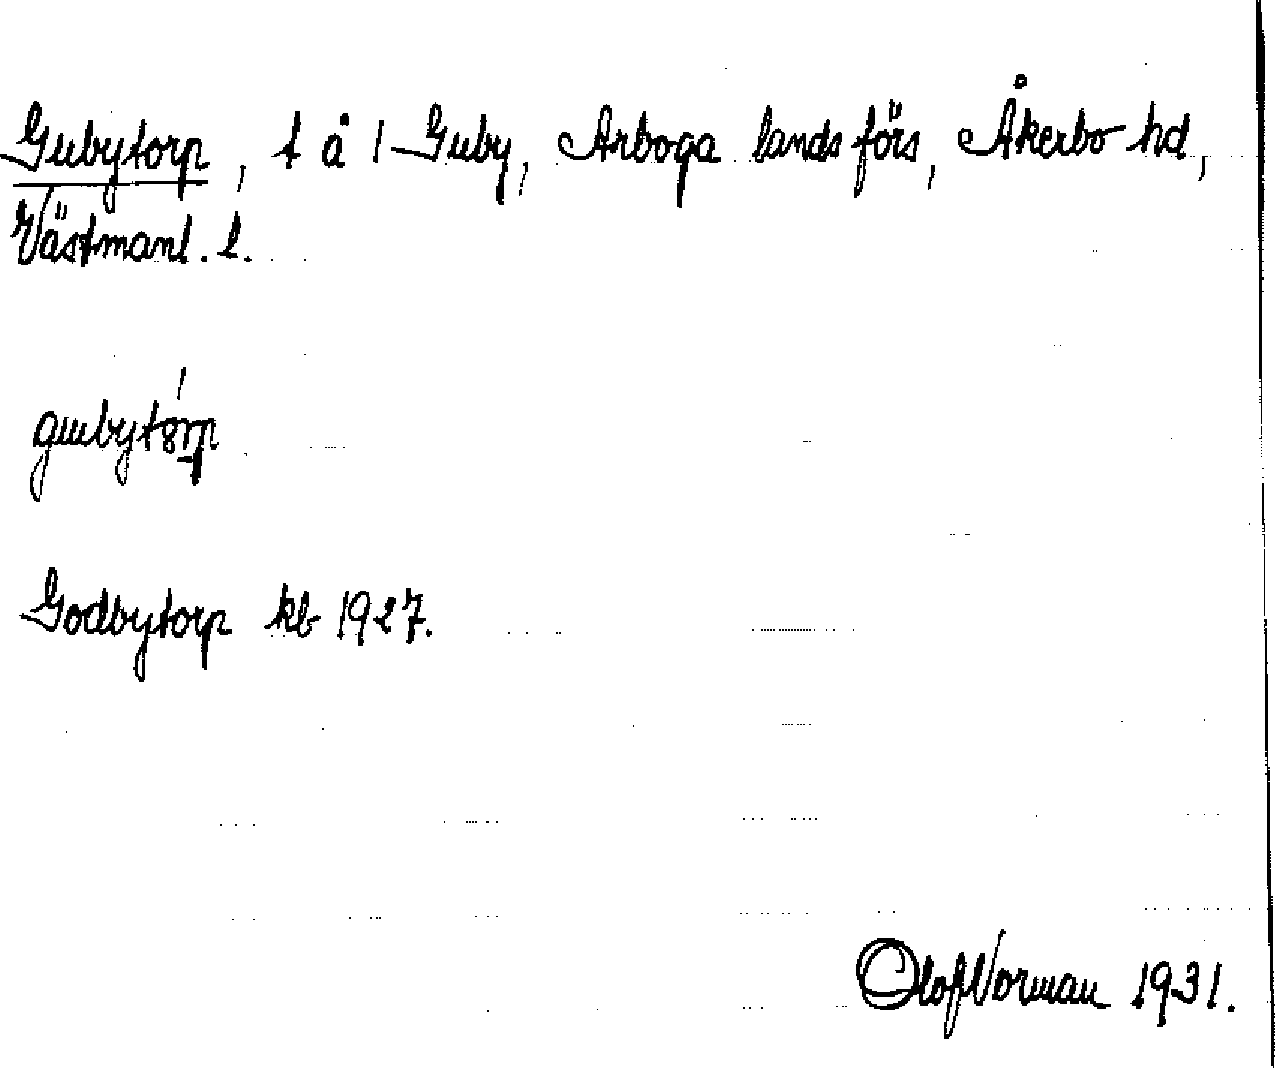 Gubytorp, t å 1 Guby, Arboga landsförs, Åkerbo hd,
Västmanl. l.
Godbytorp kb 1927.
Olof Norman 1931.